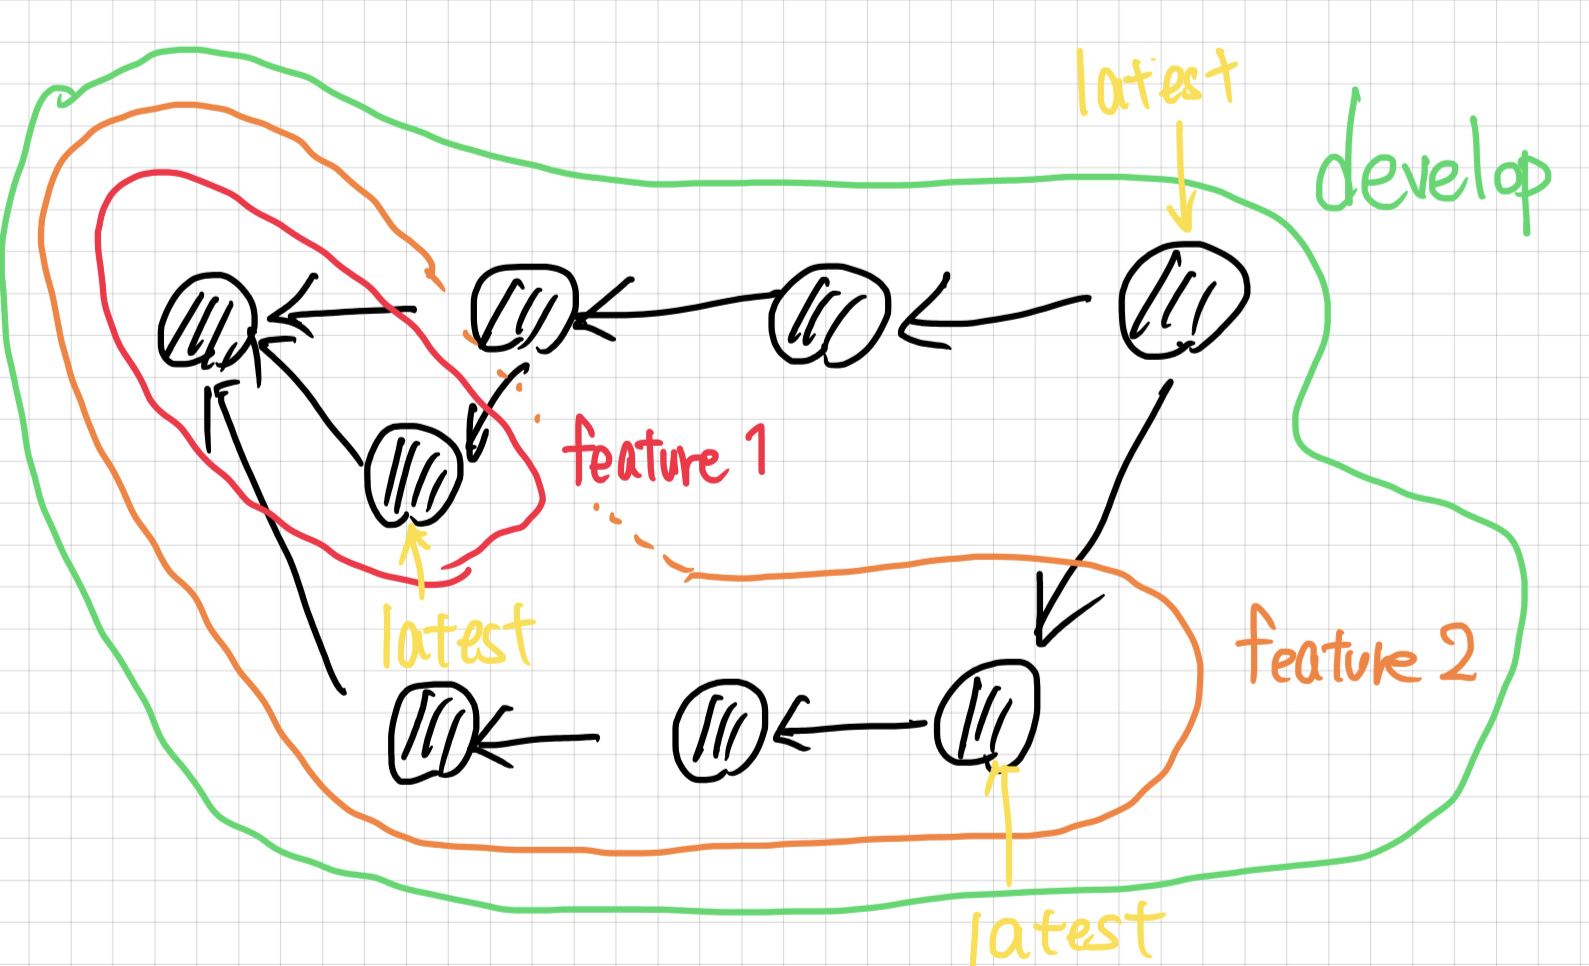 latest
develop
feature 1
latest
feature 2
latest